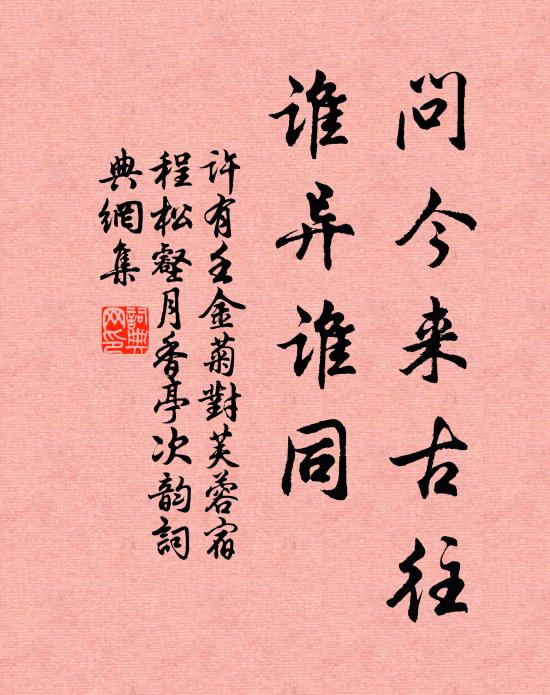 问今来古往
谁异谁同
许有壬金菊對芙蓉宿
程松壑月香亭次韵詞
典網集
詞典
网印